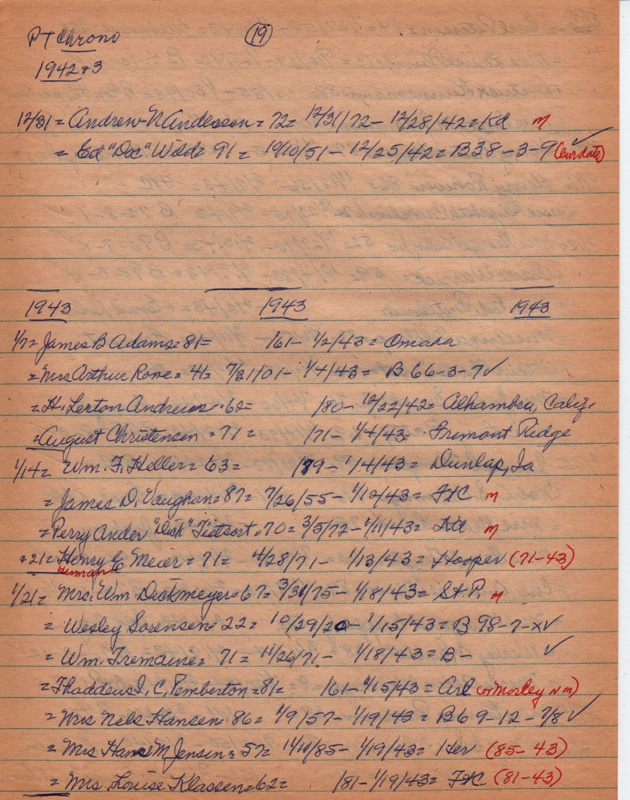 PT Chrono (19)
1942 & 3
12/31 = Andrew N Andessen = 72 = 12/31/72 - 12/28/42 = Kd m
= Ed "Doc" Wilde 91 = 10/10/51 - 12/25/42 = B 38-3-9 ✓ (Cor date)
1943 1943 1943
1/7 = James B Adams = 81 = /61 - 1/2/43 = Omaha
= Mrs Arthur Rone = 41 = 7/31/01 - 1/4/43 = B 66-3-7 ✓
= H. Lexton Andrews = 62 = /80 - 12/22/42 = Alhambra, Calif.
= August Christensen = 71 = /71 - 1/4/43 = Fremont Ridge
1/14 = Wm. F. Heller = 63 = /79 - 1/4/43 = Dunlap, Ia
= James D. Vaughan = 87 = 7/26/55 - 1/12/43 = FC m
= Perry Ander "Dick" Tietsort = 70 = 3/5/72 - 1/11/43 = Kd m
*21 = Henry C Meier = 71 = 4/28/71 - 1/13/43 = Hooper (71-43)
Herman
1/21 = Mrs. Wm Dickmeyer = 67 = 3/31/75 - 1/18/43 = St P. m
= Wesley Sorensen = 22 = 10/29/20 - 1/15/43 = B 98-7-XV
= Wm. Tremaine = 71 = 11/26/71 - 1/18/43 = B - ✓
= Thaddeus I. C. Pemberton = 81 = /61 - 1/15/43 = Arl (or Mosley N m)
= Mrs Nels Hansen = 86 = 1/9/57 - 1/19/43 = B 69-12-7/8 ✓
= Mrs Hans M Jensen = 57 = 11/10/85 - 1/19/43 = Her (85-43)
= Mrs. Louise Klassen = 62 = /81 - 1/19/43 = FC (81-43)